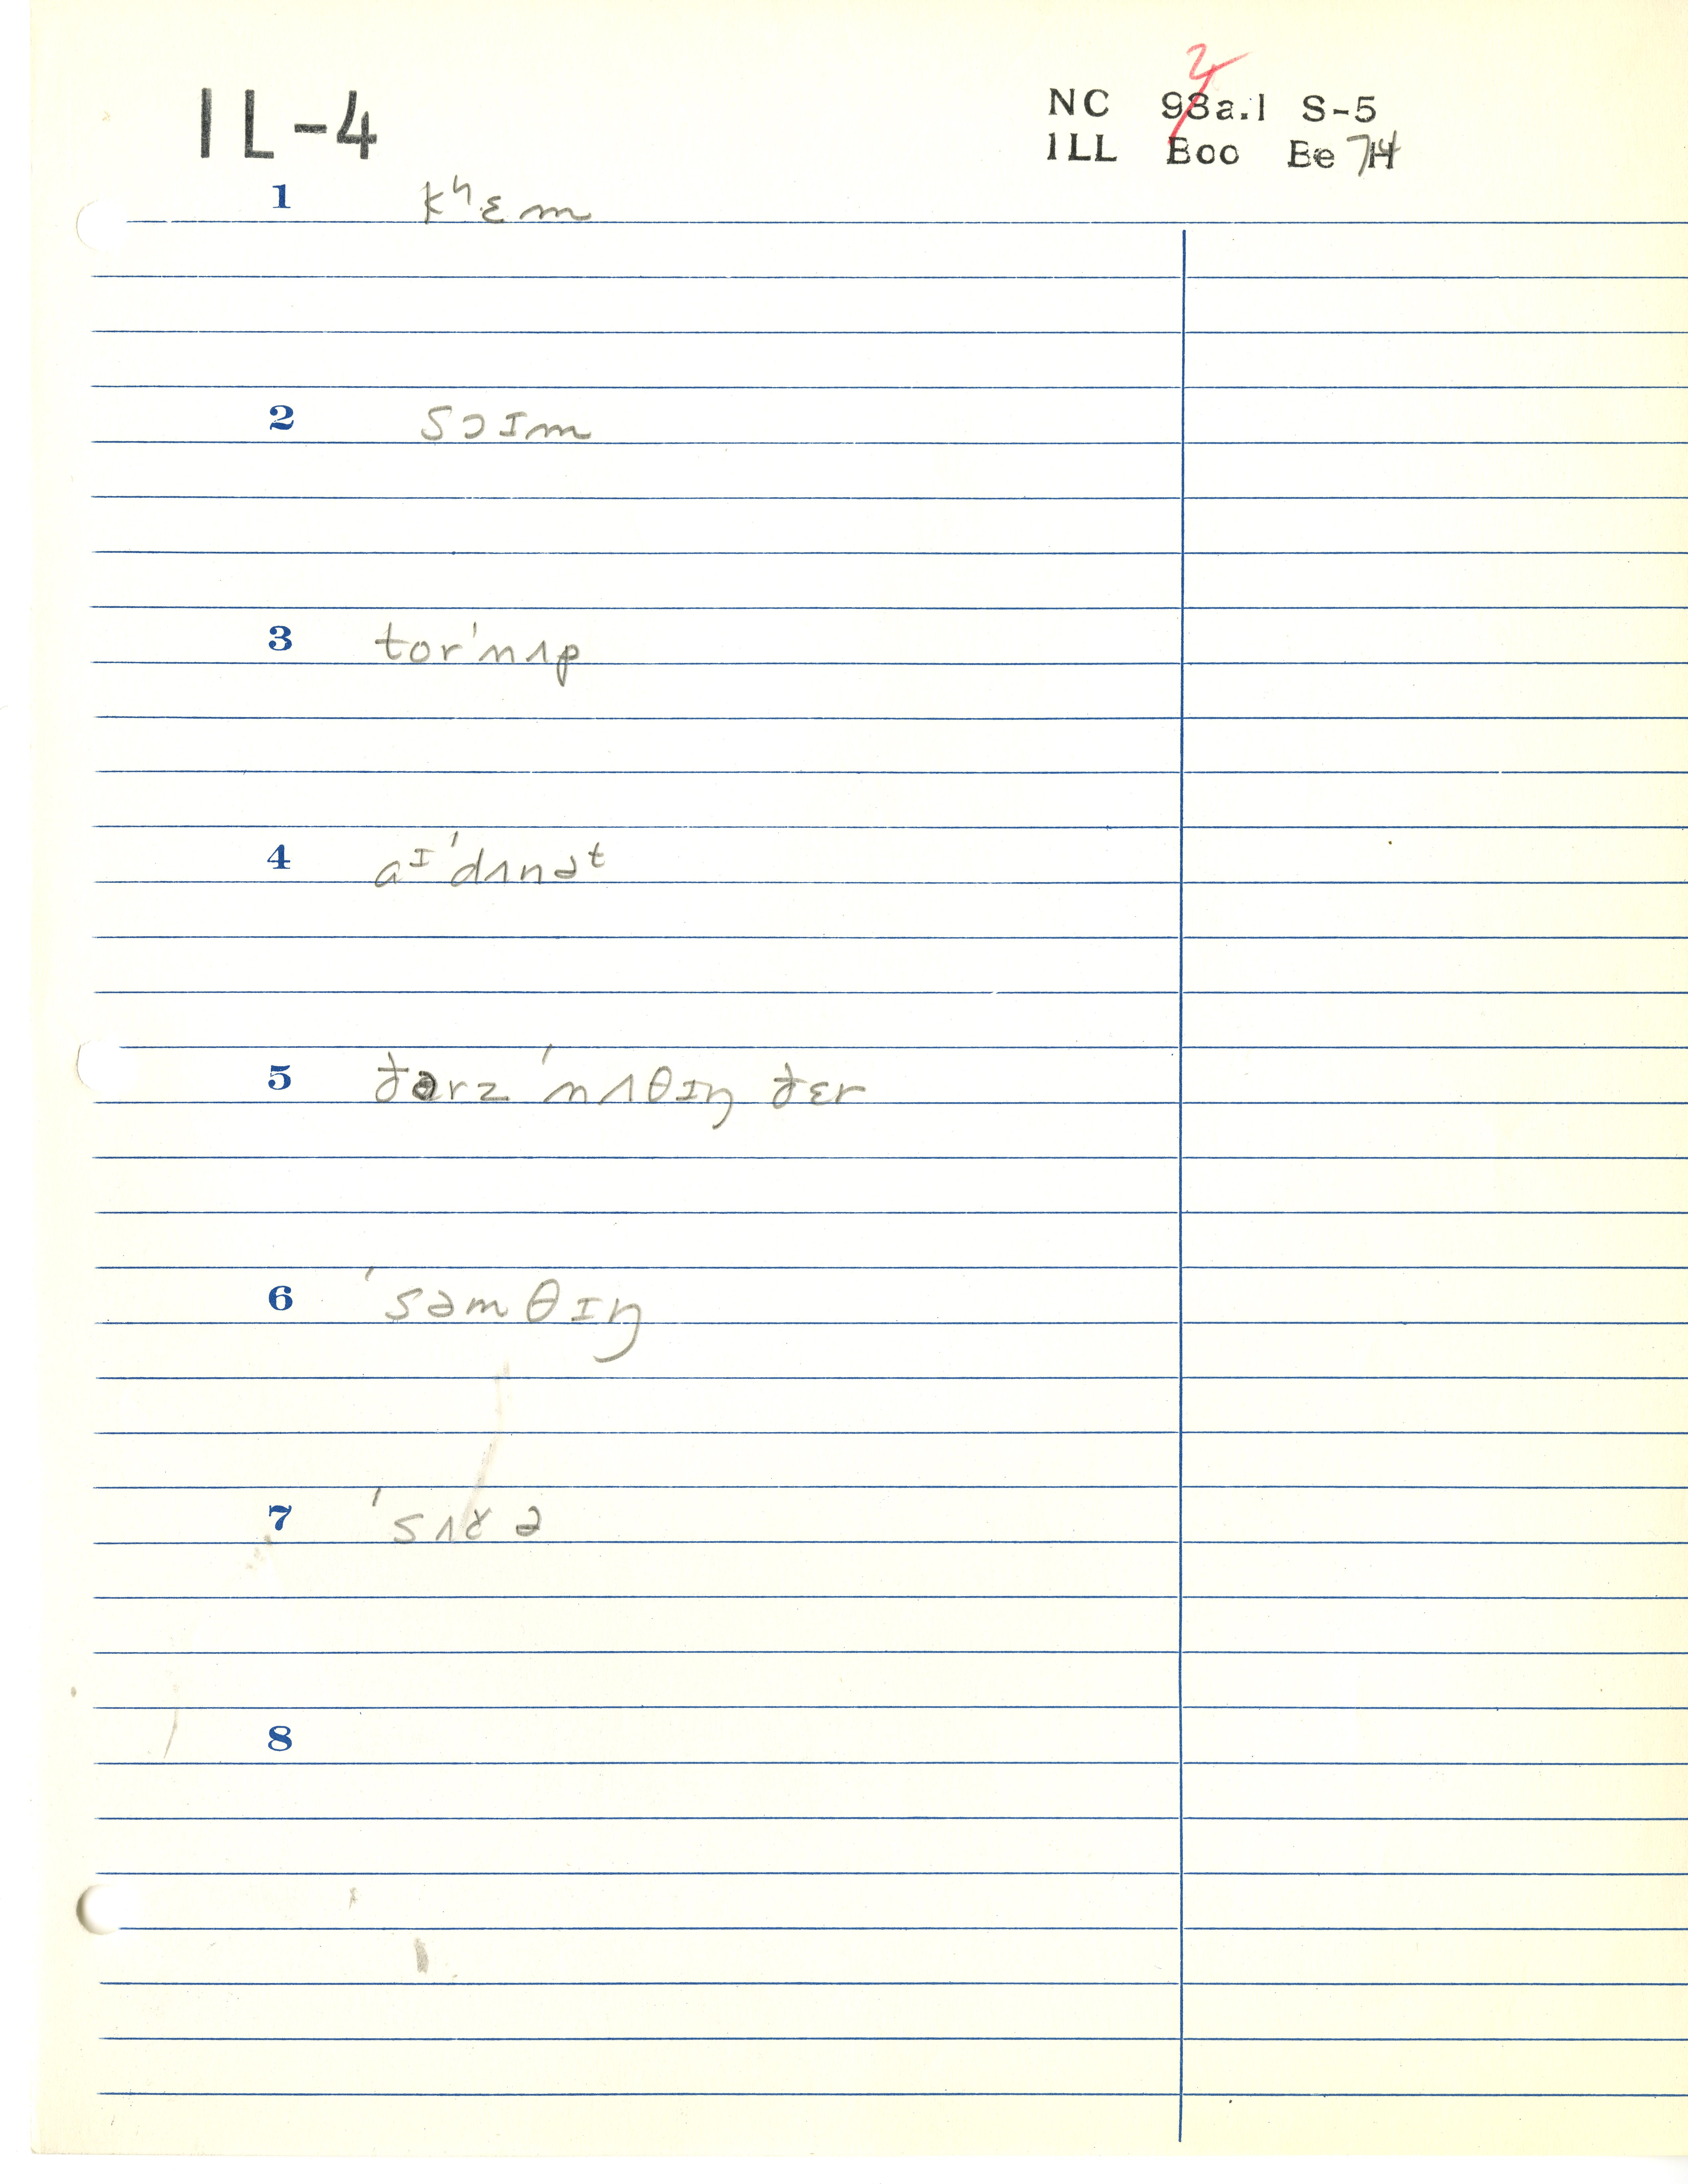 IL-4
NC 93a.1 S-5
2
ILL Boo Be 714
1 kʰɛm
2 sɔɪm
3 tor'nʌp
4 aᴵ'dʌnəᵗ
5 ðərz 'nʌθɪŋ ðɛr
6 'səmθɪŋ
7
8